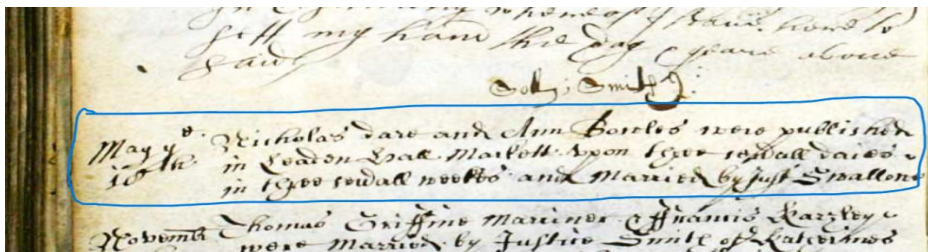 sett my hand the day & yeare above
said
Solly: Smith
May ye Nicholas dare and Ann Bowles were published
10th in Leaden Hall Markett upon three seuall daies
in three seuall weekes and Married by Just Swallow
Novemb Thomas Griffine Marriner & ffrancis
were Married by Justice Smith of Katherines